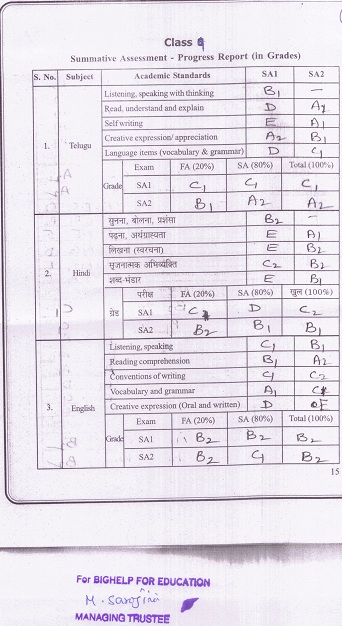 Class 9
Summative Assessment - Progress Report (in Grades)
S. No. Subject Academic Standards SA1 SA2
Listening, speaking with thinking B1 —
Read, understand and explain D A2
Self writing E A1
Creative expression/ appreciation A2 B1
1. Telugu
Language items (vocabulary & grammar) D C1
Exam FA (20%) SA (80%) Total (100%)
Grade SA1 C1 C1 C1
SA2 B1 A2 A2
सुनना, बोलना, प्रशंसा B2 —
पढ़ना, अर्थग्राह्यता E A1
लिखना (स्वरचना) E B2
सृजनात्मक अभिव्यक्ति C2 B2
2. Hindi
शब्द-भंडार E B1
परीक्षा FA (20%) SA (80%) कुल (100%)
ग्रेड SA1 C D C2
SA2 B2 B1 B1
Listening, speaking C1 B1
Reading comprehension B1 A2
Conventions of writing C1 C2
Vocabulary and grammar A1 C
3. English
Creative expression (Oral and written) D E
Exam FA (20%) SA (80%) Total (100%)
Grade SA1 B2 B2 B2
SA2 B2 C1 B2
15
For BIGHELP FOR EDUCATION
M. Sarojini
MANAGING TRUSTEE